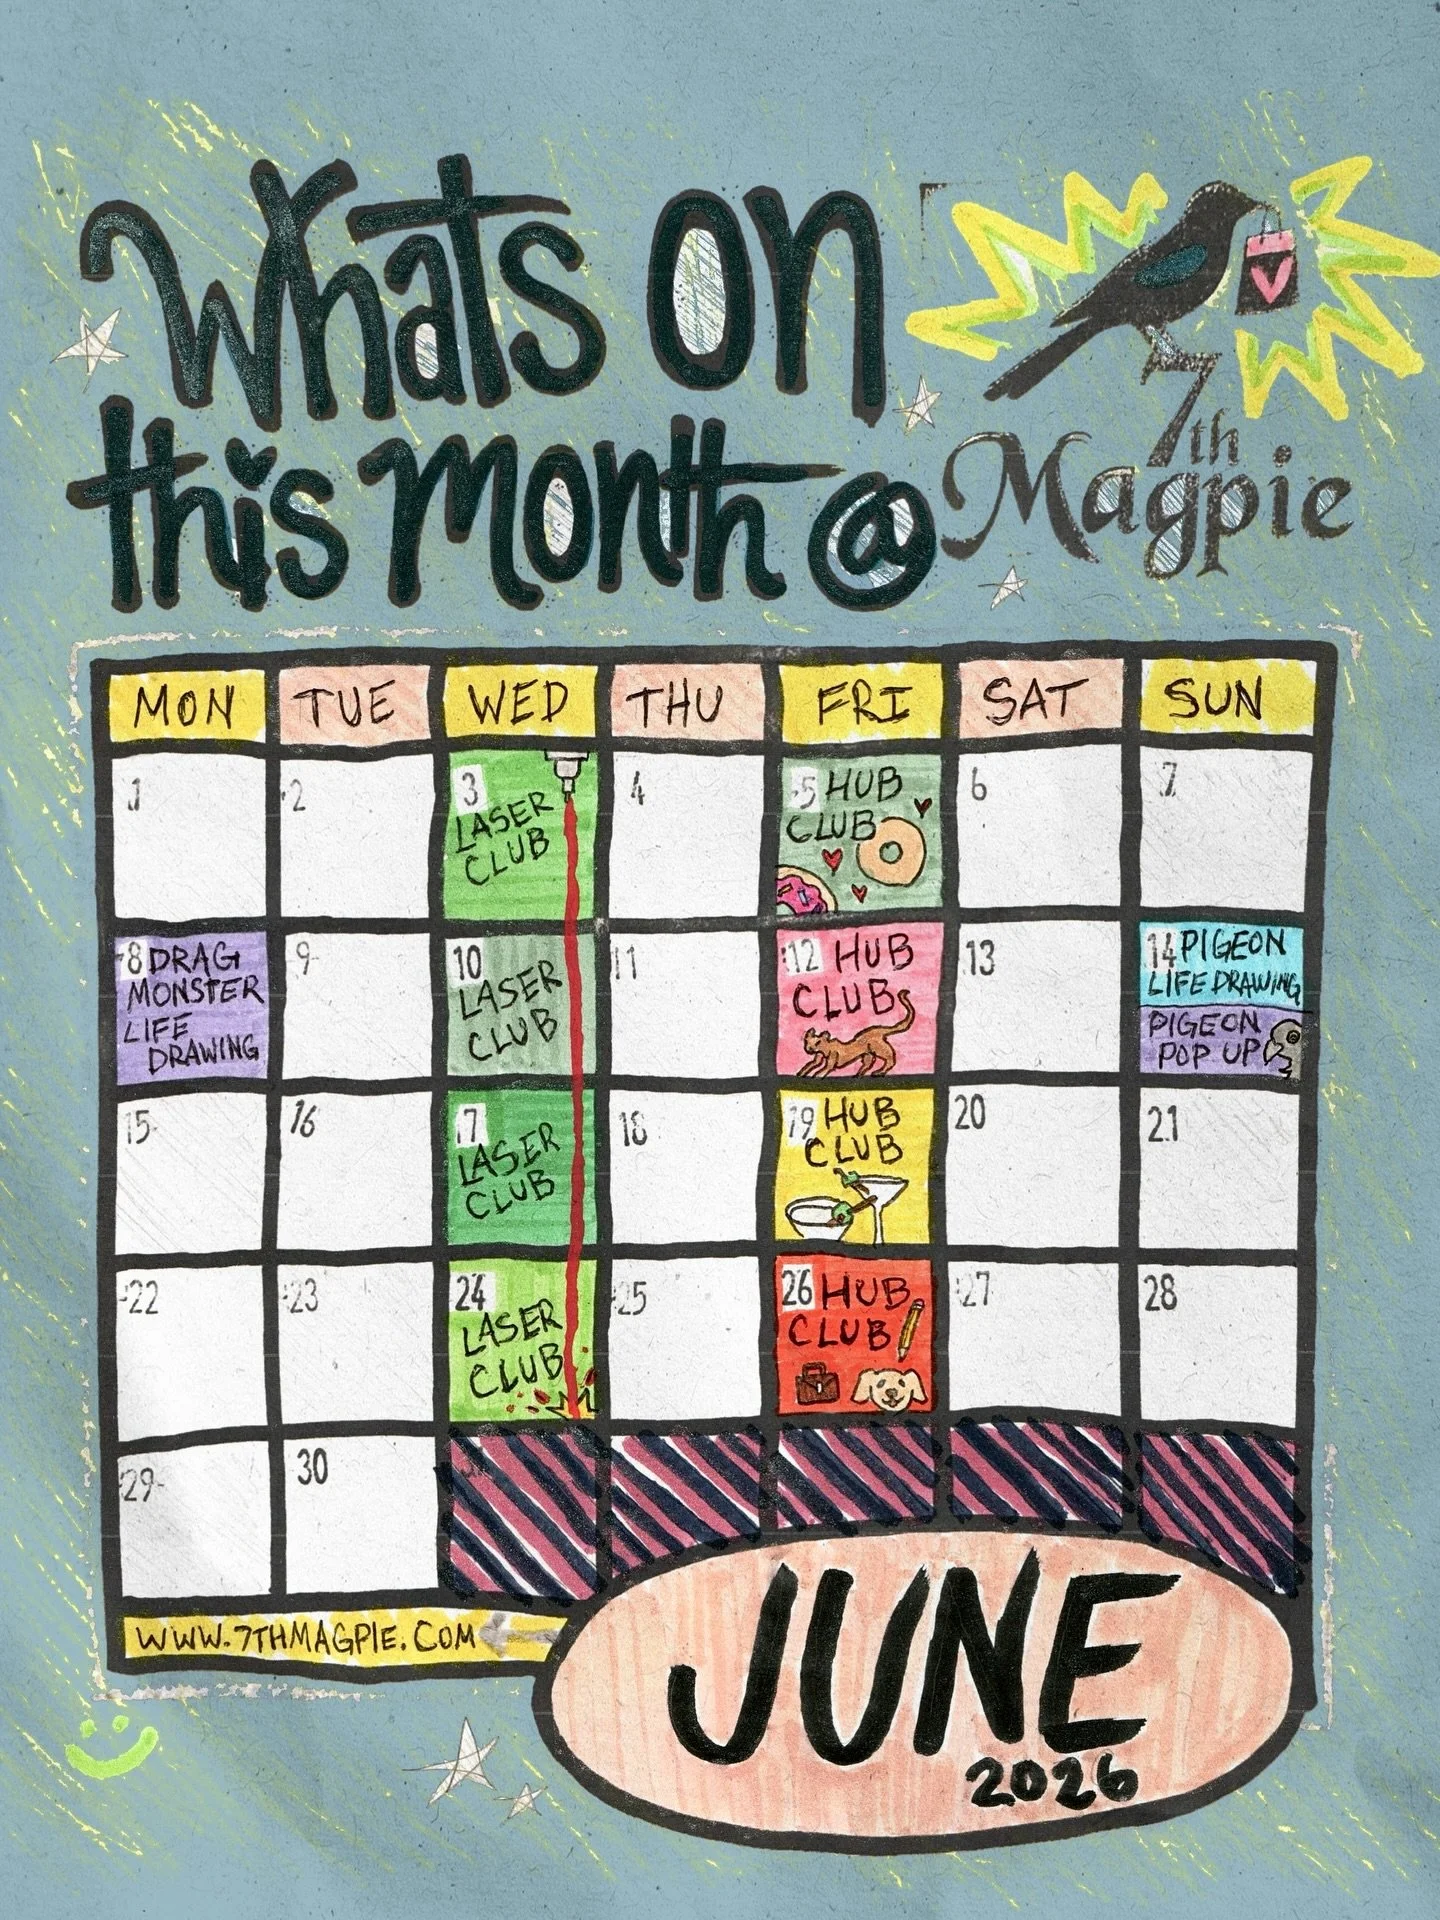 Whats on
this month @
7th
Magpie
MON TUE WED THU FRI SAT SUN
1
2
3
LASER
CLUB
4
5 HUB
CLUB
6
7
8 DRAG
MONSTER
LIFE
DRAWING
9
10
LASER
CLUB
11
12 HUB
CLUB
13
14 PIGEON
LIFE DRAWING
PIGEON
POP UP
15
16
17
LASER
CLUB
18
19 HUB
CLUB
20
21
22
23
24
LASER
CLUB
25
26 HUB
CLUB
27
28
29
30
WWW.7THMAGPIE.COM
JUNE
2026